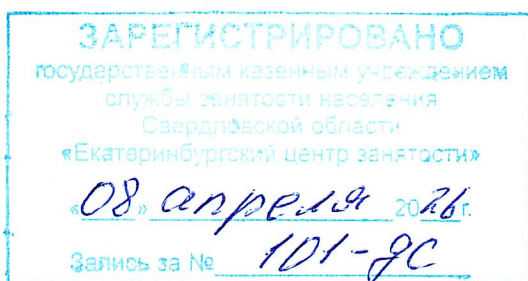 ЗАРЕГИСТРИРОВАНО
государственным казенным учреждением
службы занятости населения
Свердловской области
«Екатеринбургский центр занятости»
«08» апреля 2026 г.
Запись за № 101-дс